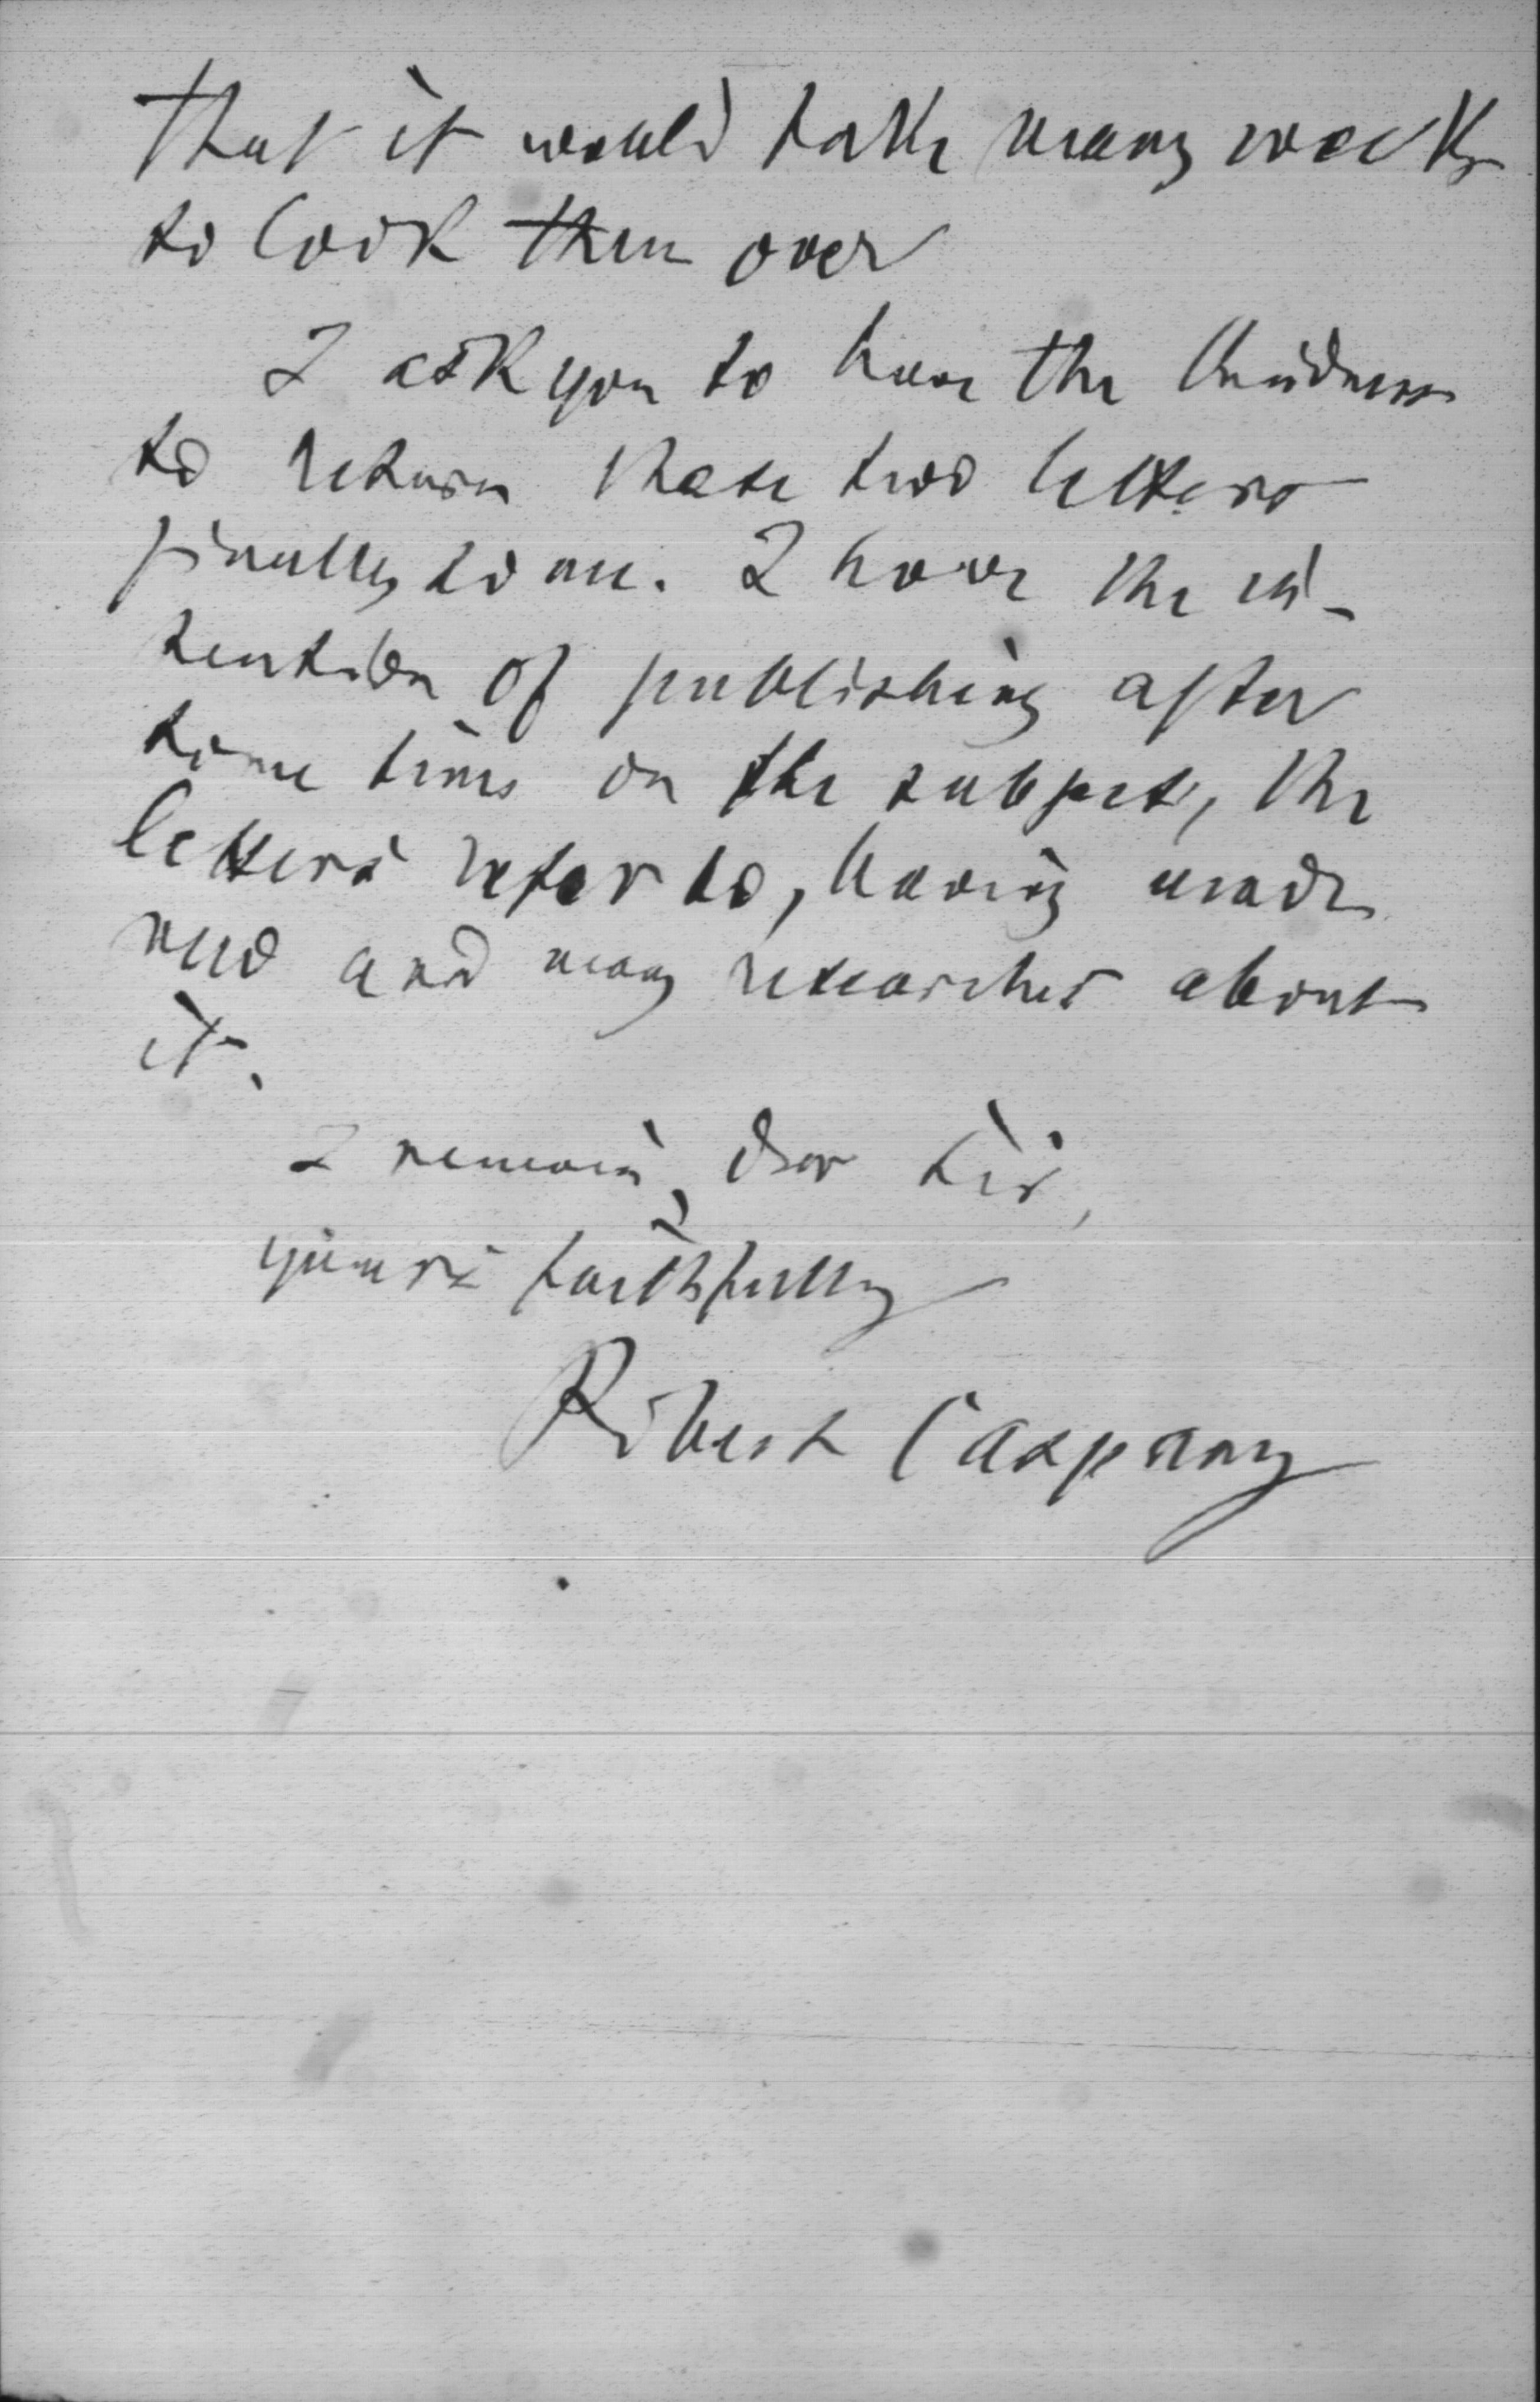 that it would take many weeks
to look them over
I ask you to have the kindness
to return these two letters
finally to me. I have the in-
tention of publishing after
some time on the subject, the
letters refer to, having made
new and many researches about
it.
I remain, dear Sir,
yours faithfully
Robert Caspary